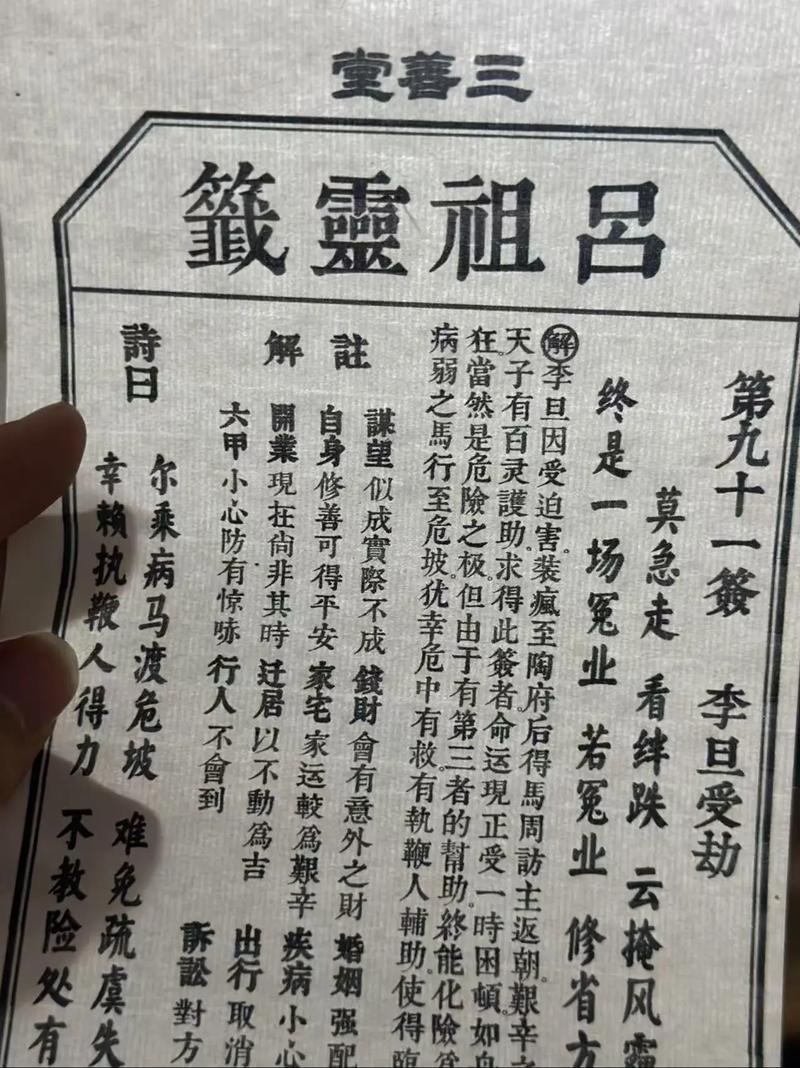 三善堂
呂祖靈籤
第九十一簽 李旦受劫
莫急走 看绊跌 云掩风
终是一场冤业 若冤业 修省方
解李旦因受迫害。裝瘋至陶府后得馬周訪主返朝。艱辛之
天子有百灵護助。求得此簽者。命运現正受一時困頓。如舟
狂。當然是危險之极。但由于有第三者的幫助。終能化險爲
病弱之馬行至危坡。犹幸危中有救。有執鞭人輔助。使得臨
註解
謀望 似成實際不成 錢財 會有意外之財 婚姻 强配
自身 修善可得平安 家宅 家运較爲艱辛 疾病 小心
開業 現在尙非其時 迁居 以不動爲吉 出行 取消
六甲 小心防有惊哧 行人 不會到 訴訟 對方
詩曰
尔乘病马渡危坡 难免疏虞失
幸赖执鞭人得力 不教险处有